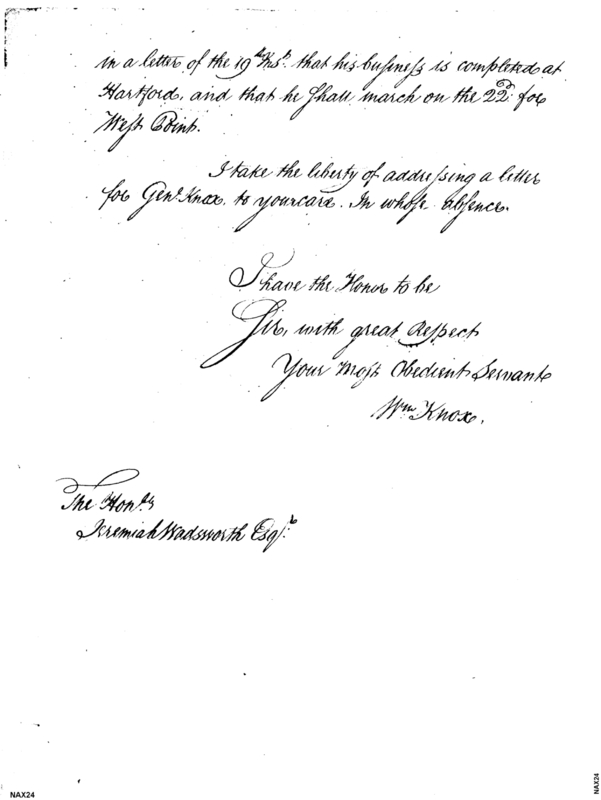 in a letter of the 19th Inst. that his business is completed at
Hartford, and that he shall march on the 22d. for
West Point.
I take the liberty of addressing a letter
for Genl. Knox, to your care. In whose absence.
I have the Honor to be
Sir, with great Respect
Your Most Obedient Servant
Wm. Knox.
The Honble
Jeremiah Wadsworth Esqr.
NAX24
NAX24